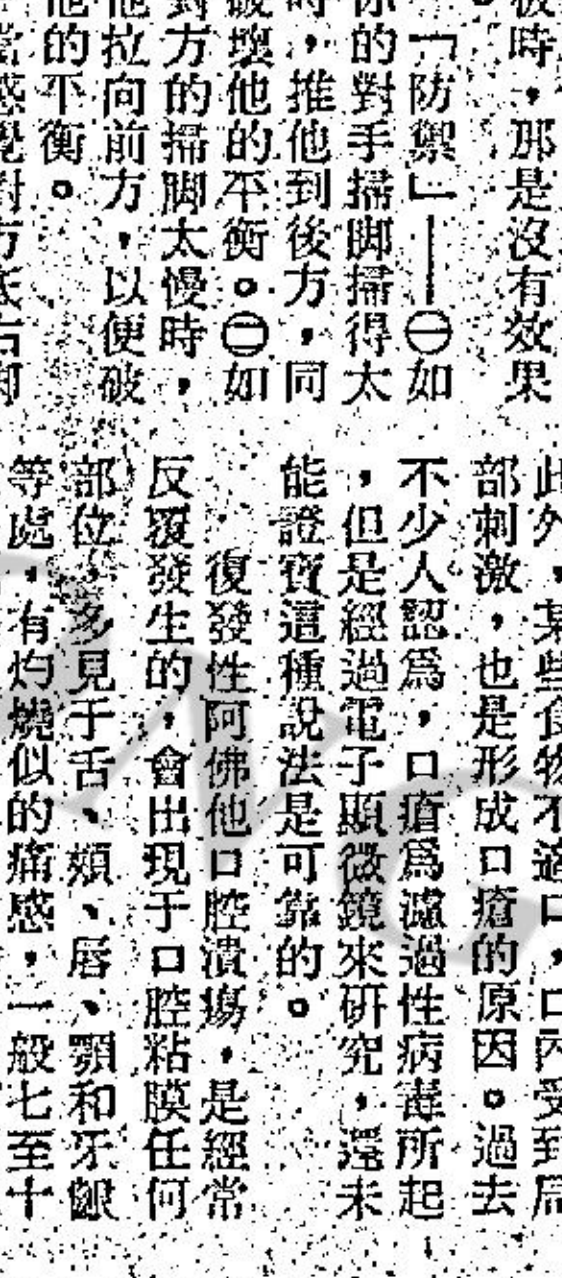 被時，那是沒有效果
。
「防禦」——㊀如
你的對手掃脚掃得太
時，推他到後方，同
破壞他的平衡。㊁如
對方的掃脚太慢時，
他拉向前方，以便破
他的平衡。
感覺對方
此外，某些食物不適口，口內受到局
部刺激，也是形成口瘡的原因。過去
不少人認爲，口瘡爲濾過性病毒所起
，但是經過電子顯微鏡來研究，還未
能證實這種說法是可靠的。
復發性阿佛他口腔潰瘍，是經常
反覆發生的，會出現于口腔粘膜任何
部位，多見于舌、頰、唇、顎和牙齦
等處，有灼燒似的痛感，一般七至十